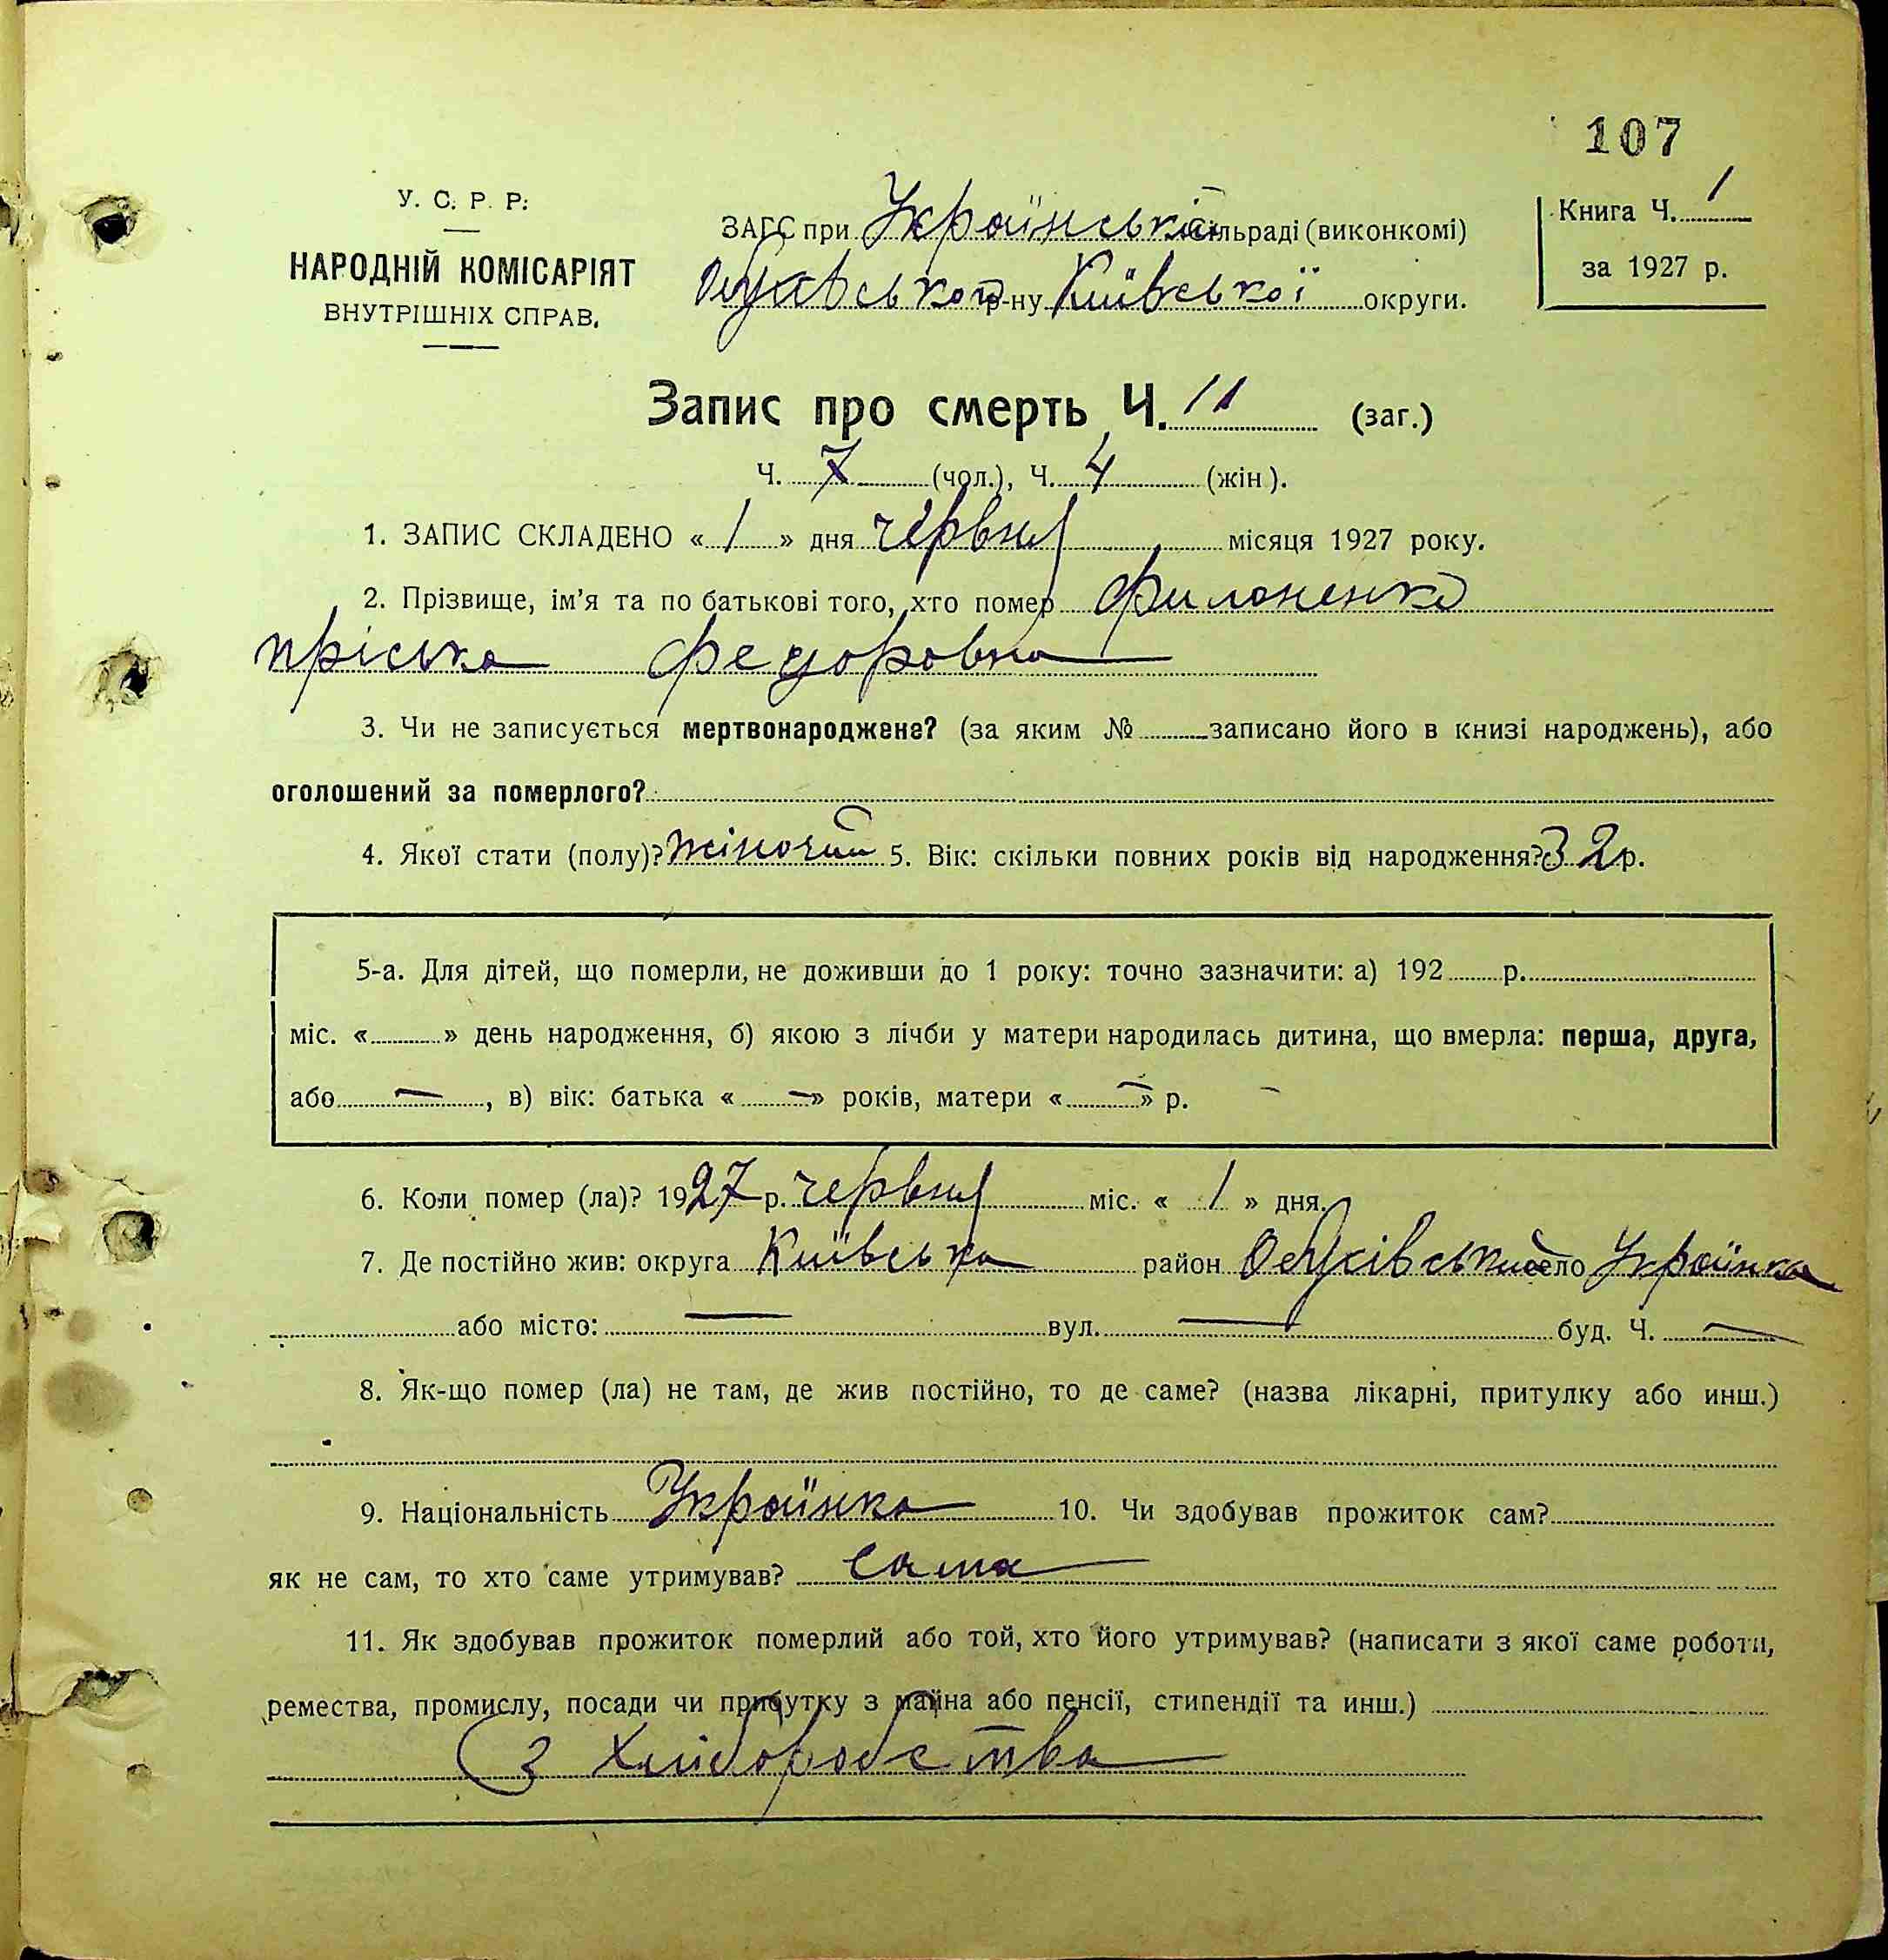 107
У. С. Р. Р.
НАРОДНІЙ КОМІСАРІЯТ
ВНУТРІШНІХ СПРАВ.
ЗАГС при Українській сільраді (виконкомі)
р-ну Київської округи.
Книга Ч. 1
за 1927 р.
Запис про смерть Ч. 11 (заг.)
Ч. 7 (чол.), Ч. 4 (жін).
1. ЗАПИС СКЛАДЕНО « 1 » дня червня місяця 1927 року.
2. Прізвище, ім'я та по батькові того, хто помер Филоненко
Пріська Федоровна
3. Чи не записується мертвонароджене? (за яким № записано його в книзі народжень), або
оголошений за померлого?
4. Якої стати (полу)? жіночий 5. Вік: скільки повних років від народження? 32 р.
5-а. Для дітей, що померли, не доживши до 1 року: точно зазначити: а) 192 р.
міс. « » день народження, б) якою з лічби у матери народилась дитина, що вмерла: перша, друга,
або — , в) вік: батька « — » років, матери « — » р.
6. Коли помер (ла)? 1927 р. червня міс. « 1 » дня.
7. Де постійно жив: округа Київська район Обухівський село Українка
або місто: — вул. — буд. Ч. —
8. Як-що помер (ла) не там, де жив постійно, то де саме? (назва лікарні, притулку або инш.)
9. Національність Українка 10. Чи здобував прожиток сам?
як не сам, то хто саме утримував? сама
11. Як здобував прожиток померлий або той, хто його утримував? (написати з якої саме роботи,
ремества, промислу, посади чи прибутку з майна або пенсії, стипендії та инш.)
З Хліборобства